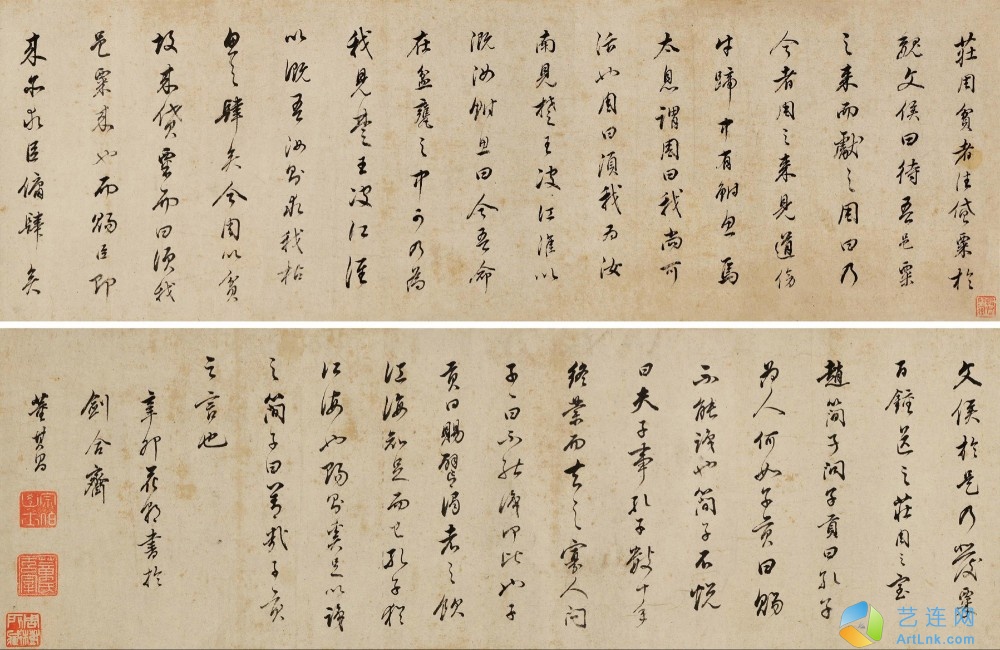 莊周貧者往貸粟於
魏文侯曰待吾邑粟
之来而獻之周曰乃
今者周之来見道傍
牛蹄中有鮒魚焉
太息謂周曰我尚可
活也周曰須我為汝
南見楚王决江淮以
溉汝鮒魚曰今吾命
在盆甕之中耳乃為
我見楚王决江淮
以溉吾汝即求我枯
魚之肆矣今周以貧
故来貸粟而曰須我
邑粟来也而賜臣即
来亦求臣傭肆矣
文侯於是乃發粟
百鐘送之莊周之室
趙簡子問子貢曰孔子
為人何如子貢曰賜
不能識也簡子不悦
曰夫子事孔子數十年
終業而去之寡人問
子子曰不能識何也子
貢曰賜譬渴者之飲
江海知足而已孔子猶
江海也賜則奚足以識
之簡子曰善哉子貢
之言也
辛卯花朝書於
劍合齋
董其昌
宗伯學士
董氏玄宰
艺连网
ArtLnk.com